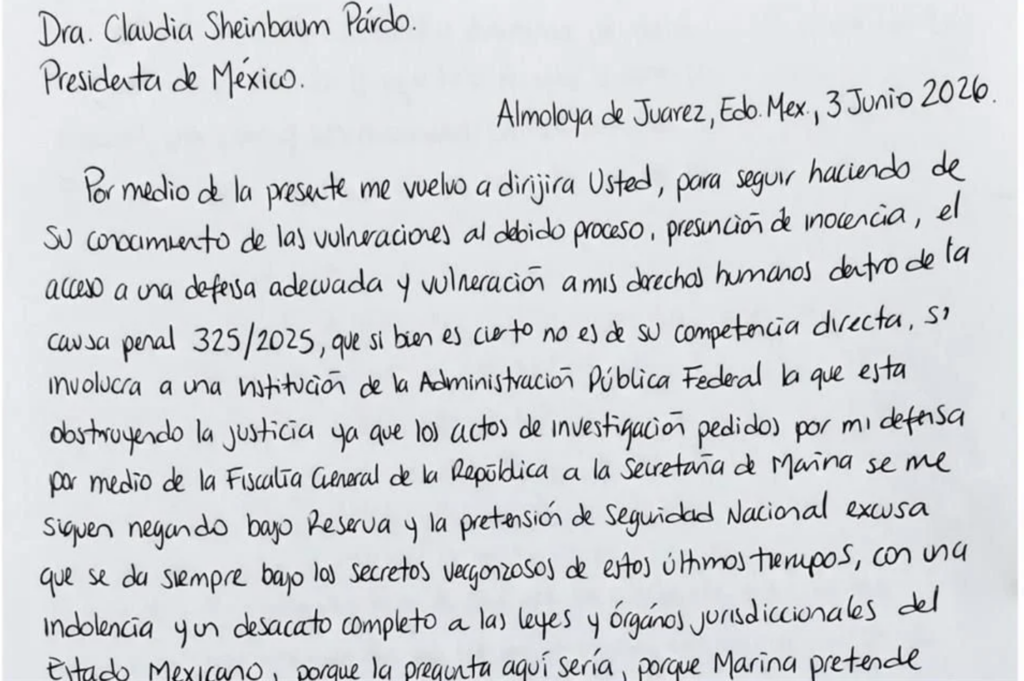 Dra. Claudia Sheinbaum Párdo.
Presidenta de México.
Almoloya de Juarez, Edo. Mex., 3 Junio 2026.
Por medio de la presente me vuelvo a dirijir a Usted, para seguir haciendo de
su conocimiento de las vulneraciones al debido proceso, presunción de inocencia, el
acceso a una defensa adecuada y vulneración a mis derechos humanos dentro de la
causa penal 325/2025, que si bien es cierto no es de su competencia directa, si
involucra a una institución de la Administración Pública Federal la que esta
obstruyendo la justicia ya que los actos de investigación pedidos por mi defensa
por medio de la Fiscalía General de la República a la Secretaría de Marina se me
siguen negando bajo Reserva y la pretensión de Seguridad Nacional excusa
que se da siempre bajo los secretos vergonzosos de estos últimos tiempos, con una
indolencia y un desacato completo a las leyes y órganos jurisdiccionales del
Estado Mexicano, porque la pregunta aquí sería, porque Marina pretende